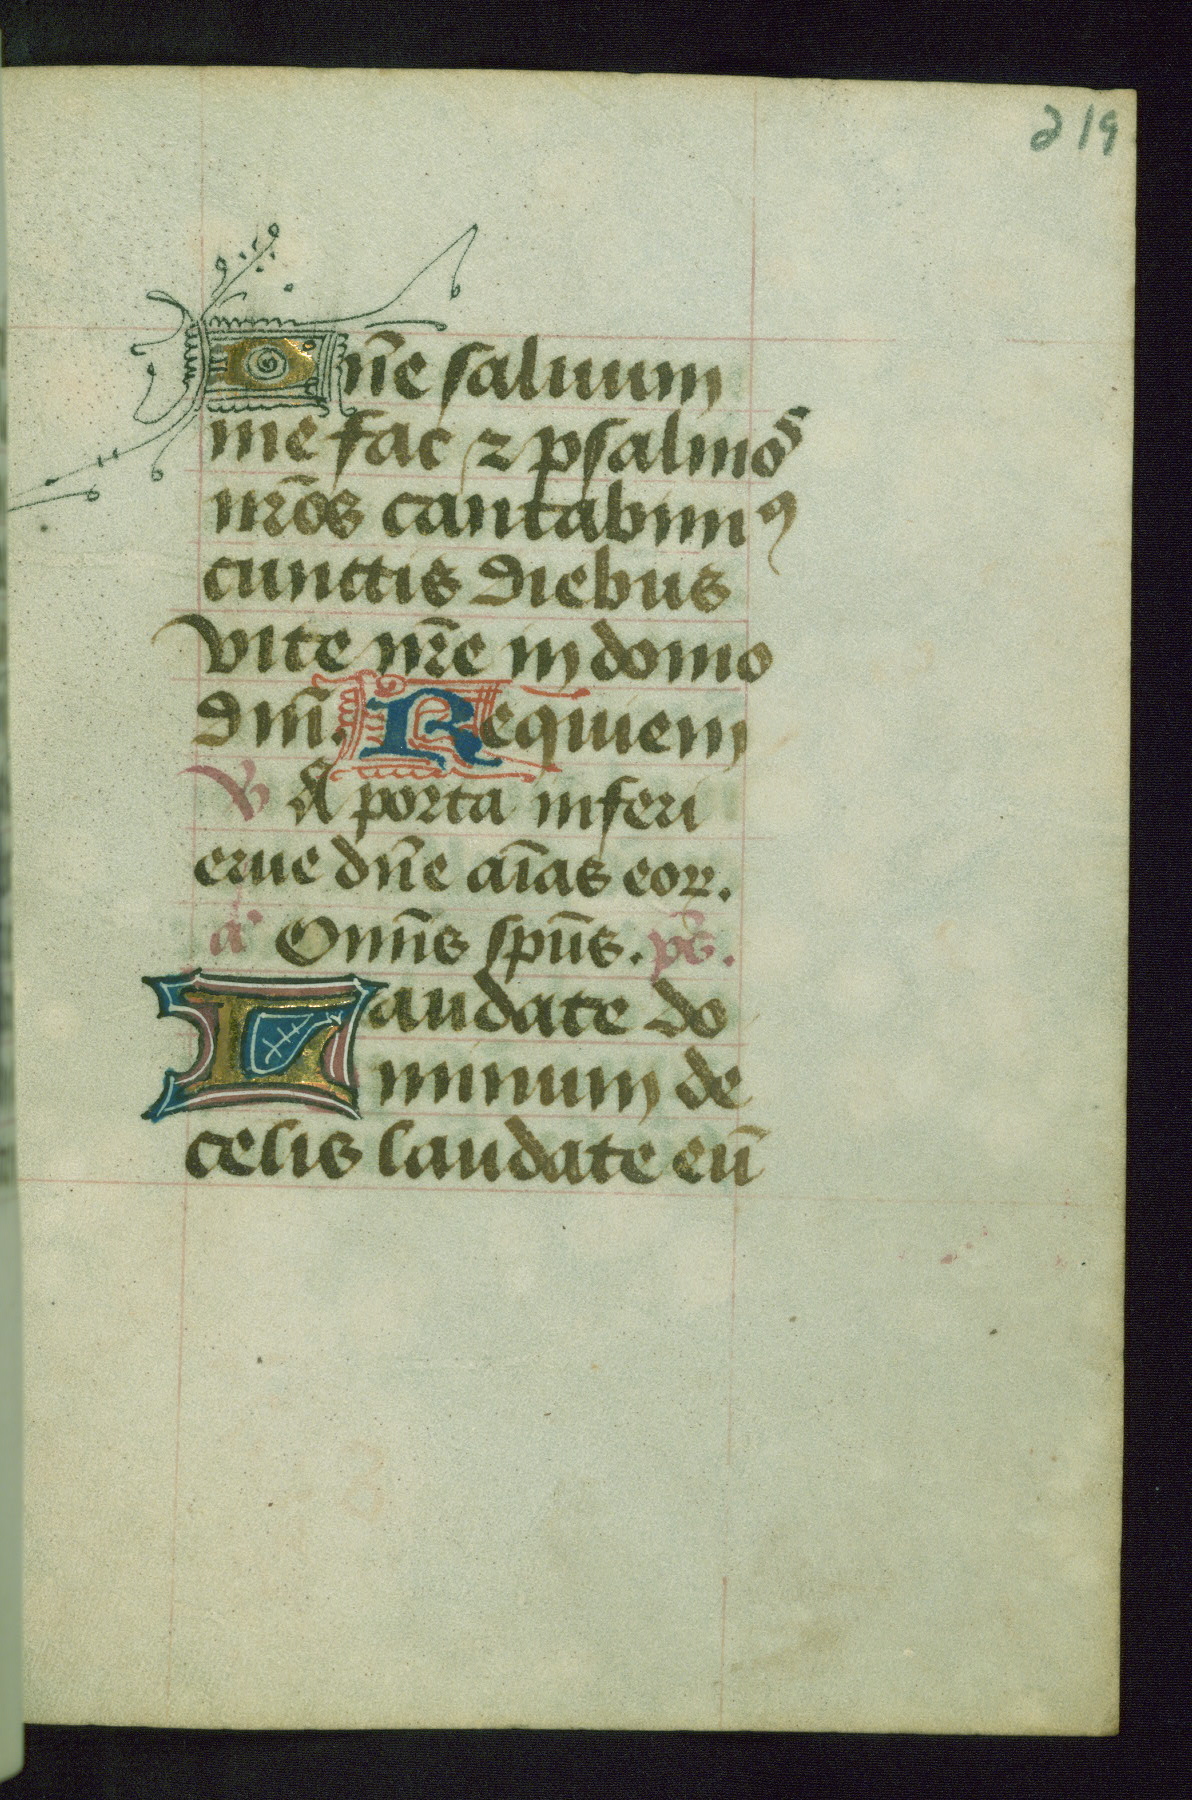 219
Dn̄e saluum
me fac ⁊ psalmos
nr̄os cantabimꝰ
cunctis diebus
vite nr̄e in domo
dm̄. Requiem
V A porta inferi
erue dn̄e aīas eoꝝ.
a Om̄s spūs. ps̄.
Laudate do
minum de
celis laudate eū